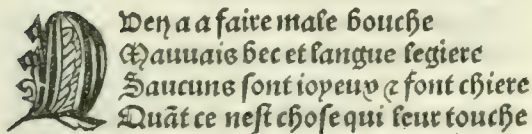 QUen a a faire male bouche
Mauuais bec et langue legiere
Saucuns sont ioyeux ⁊ font chiere
Quãt ce nest chose qui leur touche